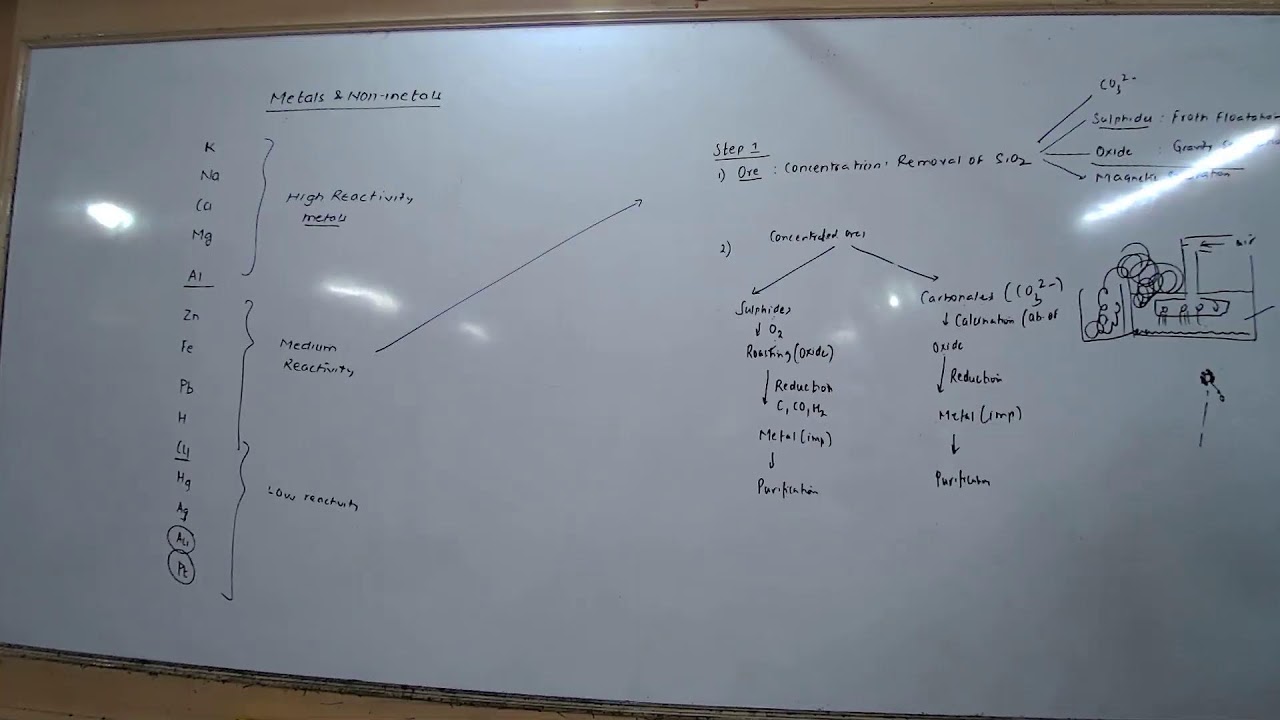 Metals & Non-metals
K
Na
Ca
Mg
Al
High Reactivity
metals
Zn
Fe
Pb
H
Medium
Reactivity
Cu
Hg
Ag
Au
Pt
Low reactivity
Step 1
1) Ore : Concentration. Removal of SiO2
CO3 2-
Sulphides : Froth Floatation
Oxide : Gravity
Magnetic
2)
Concentrated ores
Sulphides
↓ O2
Roasting (Oxide)
Reduction
C, CO, H2
Metal (imp)
↓
Purification
Carbonates (CO3 2-)
↓ (ab. of
Oxide
Reduction
Metal (imp)
↓
air